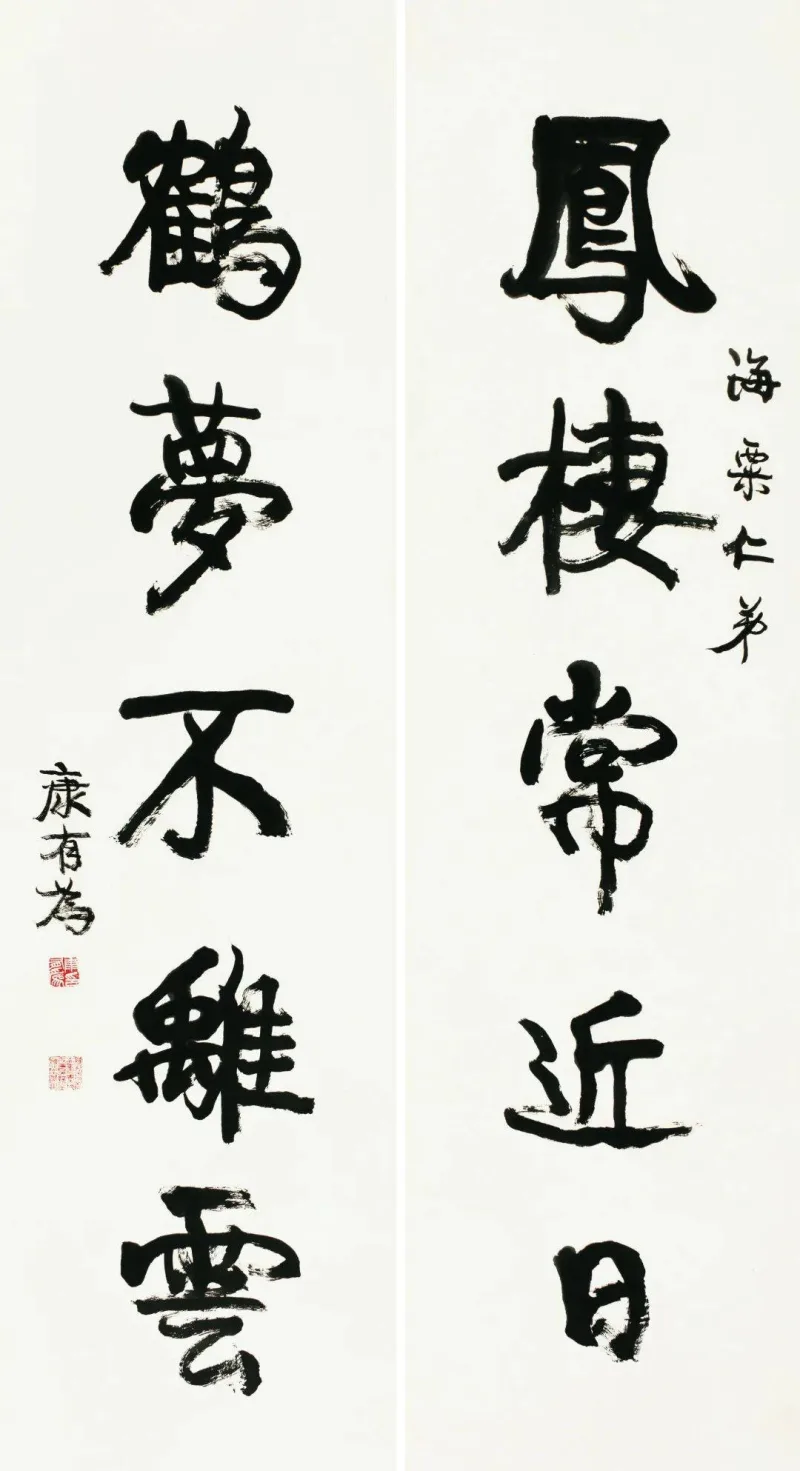 海粟仁弟
鳳棲常近日
鶴夢不離雲
康有為